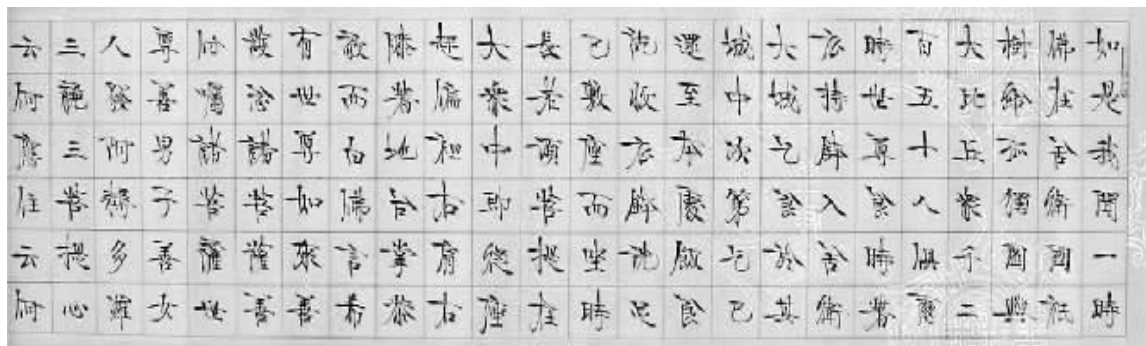 如是我聞一時
佛在舍衛國祇
樹給孤獨園與
大比丘眾千二
百五十人俱爾
時世尊食時著
衣持鉢入舍衛
大城乞食於其
城中次第乞已
還至本處飯食
訖收衣鉢洗足
已敷座而坐時
長老須菩提在
大眾中即從座
起偏袒右肩右
膝著地合掌恭
敬而白佛言希
有世尊如來善
護念諸菩薩善
付囑諸菩薩世
尊善男子善女
人發阿耨多羅
三藐三菩提心
云何應住云何